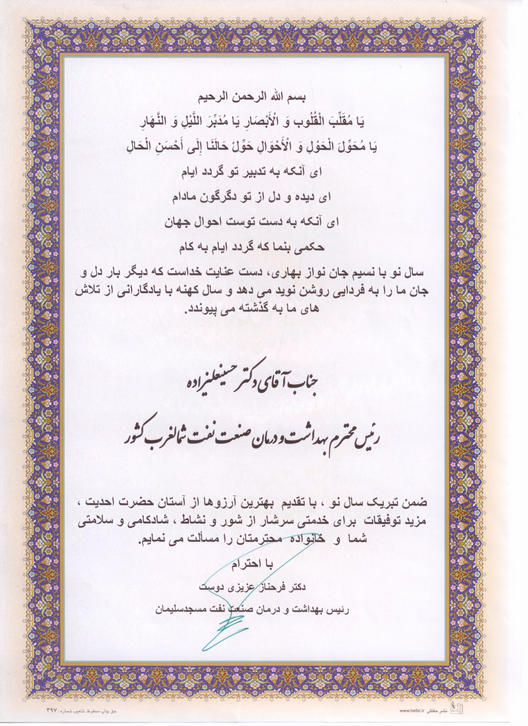 بسم الله الرحمن الرحیم
یَا مُقَلِّبَ الْقُلُوبِ وَ الْأَبْصَارِ یَا مُدَبِّرَ اللَّیْلِ وَ النَّهَارِ
یَا مُحَوِّلَ الْحَوْلِ وَ الْأَحْوَالِ حَوِّلْ حَالَنَا إِلَی أَحْسَنِ الْحَالِ
ای آنکه به تدبیر تو گردد ایام
ای دیده و دل از تو دگرگون مادام
ای آنکه به دست توست احوال جهان
حکمی بنما که گردد ایام به کام
سال نو با نسیم جان نواز بهاری، دست عنایت خداست که دیگر بار دل و
جان ما را به فردایی روشن نوید می دهد و سال کهنه با یادگارانی از تلاش
های ما به گذشته می پیوندد.
جناب آقای دکتر حسینعلیزاده
رئیس محترم بهداشت و درمان صنعت نفت شمالغرب کشور
ضمن تبریک سال نو ، با تقدیم بهترین آرزوها از آستان حضرت احدیت ،
مزید توفیقات برای خدمتی سرشار از شور و نشاط ، شادکامی و سلامتی
شما و خانواده محترمتان را مسألت می نمایم.
با احترام
دکتر فرحناز عزیزی دوست
رئیس بهداشت و درمان صنعت نفت مسجدسلیمان
حق چاپ محفوظ شماره : ۳۹۷
www.hefzi.ir